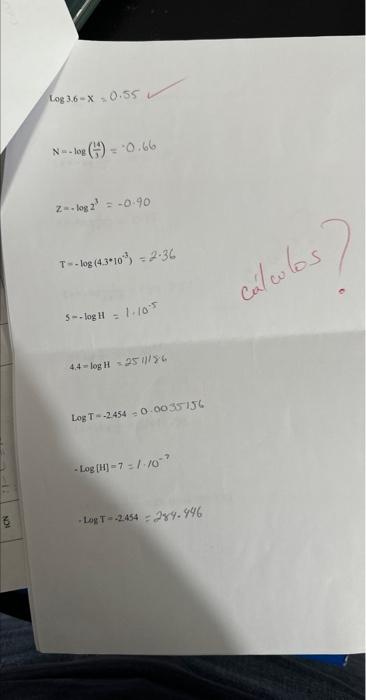 Log 3.6 = X = 0.55 ✓
N = - log (14/3) = -0.66
Z = - log 2³ = -0.90
T = - log (4.3*10⁻³) = 2.36
cálculos?
5 = - log H = 1·10⁻⁵
4.4 = log H = 25111.86
Log T = -2.454 = 0.0035156
- Log [H] = 7 = 1·10⁻⁷
- Log T = -2.454 = 284.446